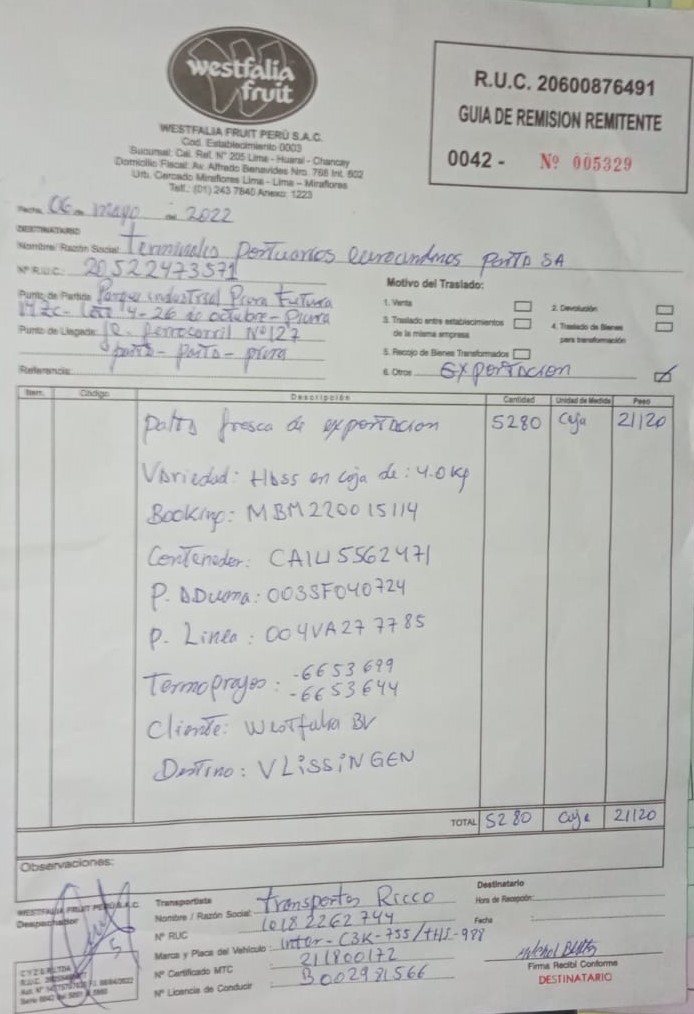 westfalia
fruit
WESTFALIA FRUIT PERÚ S.A.C.
Cod. Establecimiento 0003
Sucursal: Cal. Real N° 205 Lima - Huaral - Chancay
Domicilio Fiscal: Av. Alfredo Benavides Nro. 768 Int. 602
Urb. Cercado Miraflores Lima - Lima - Miraflores
Telf.: (01) 243 7640 Anexo: 1223
R.U.C. 20600876491
GUIA DE REMISION REMITENTE
0042 - Nº 005329
Fecha, 06 de mayo de 2022
DESTINATARIO
Nombre/ Razón Social: Terminales Portuarios Euroandinos Paita SA
N° R.U.C.: 20522473571
Punto de Partida Parque industrial Piura Futura
Mz C - Lote 4 - 26 de octubre - Piura
Punto de Llegada: Jr. Ferrocarril Nº127
paita - paita - piura
Referencia:
Motivo del Traslado:
1. Venta
2. Devolución
3. Traslado entre establecimientos
de la misma empresa
4. Traslado de Bienes
para transformación
5. Recojo de Bienes Transformados
6. Otros Exportacion
Item. Código Descripción Cantidad Unidad de Medida Peso
palta fresca de exportacion 5280 Caja 21120
Variedad: Hass en caja de: 4.0 Kg
Booking: MBM220015114
Contenedor: CAIU5562471
P. Aduana: 003SF040724
P. Linea: 004VA277785
Termoprajos: -6653699
-6653644
Cliente: Westfalia BV
Destino: VLISSINGEN
TOTAL 5280 Caja 21120
Observaciones:
WESTFALIA FRUIT PERÚ S.A.C.
Despachador
Transportista
Nombre / Razón Social Transportes Ricco
N° RUC 10182262744
Marca y Placa del Vehículo: Inter - C3K-755/THS-988
N° Certificado MTC 211800172
N° Licencia de Conducir B002981566
Destinatario
Hora de Recepción:
Fecha :
Firma Recibí Conforme
DESTINATARIO